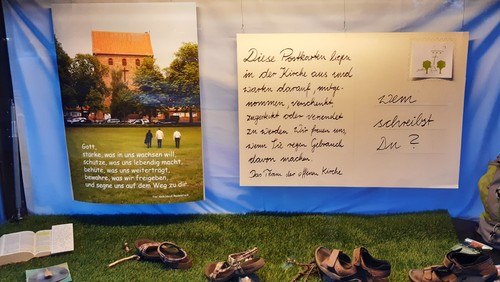 Gott,
stärke, was in uns wachsen will,
schütze, was uns lebendig macht,
behüte, was uns weiterträgt,
bewahre, was wir freigeben,
und segne uns auf dem Weg zu dir
Diese Postkarten liegen
in der Kirche aus und
warten darauf, mitge-
nommen, verschenkt,
zugesteckt oder versendet
zu werden. Wir freuen uns,
wenn Sie regen Gebrauch
davon machen.
Das Team der offenen Kirche
wem
schreibst
Du?